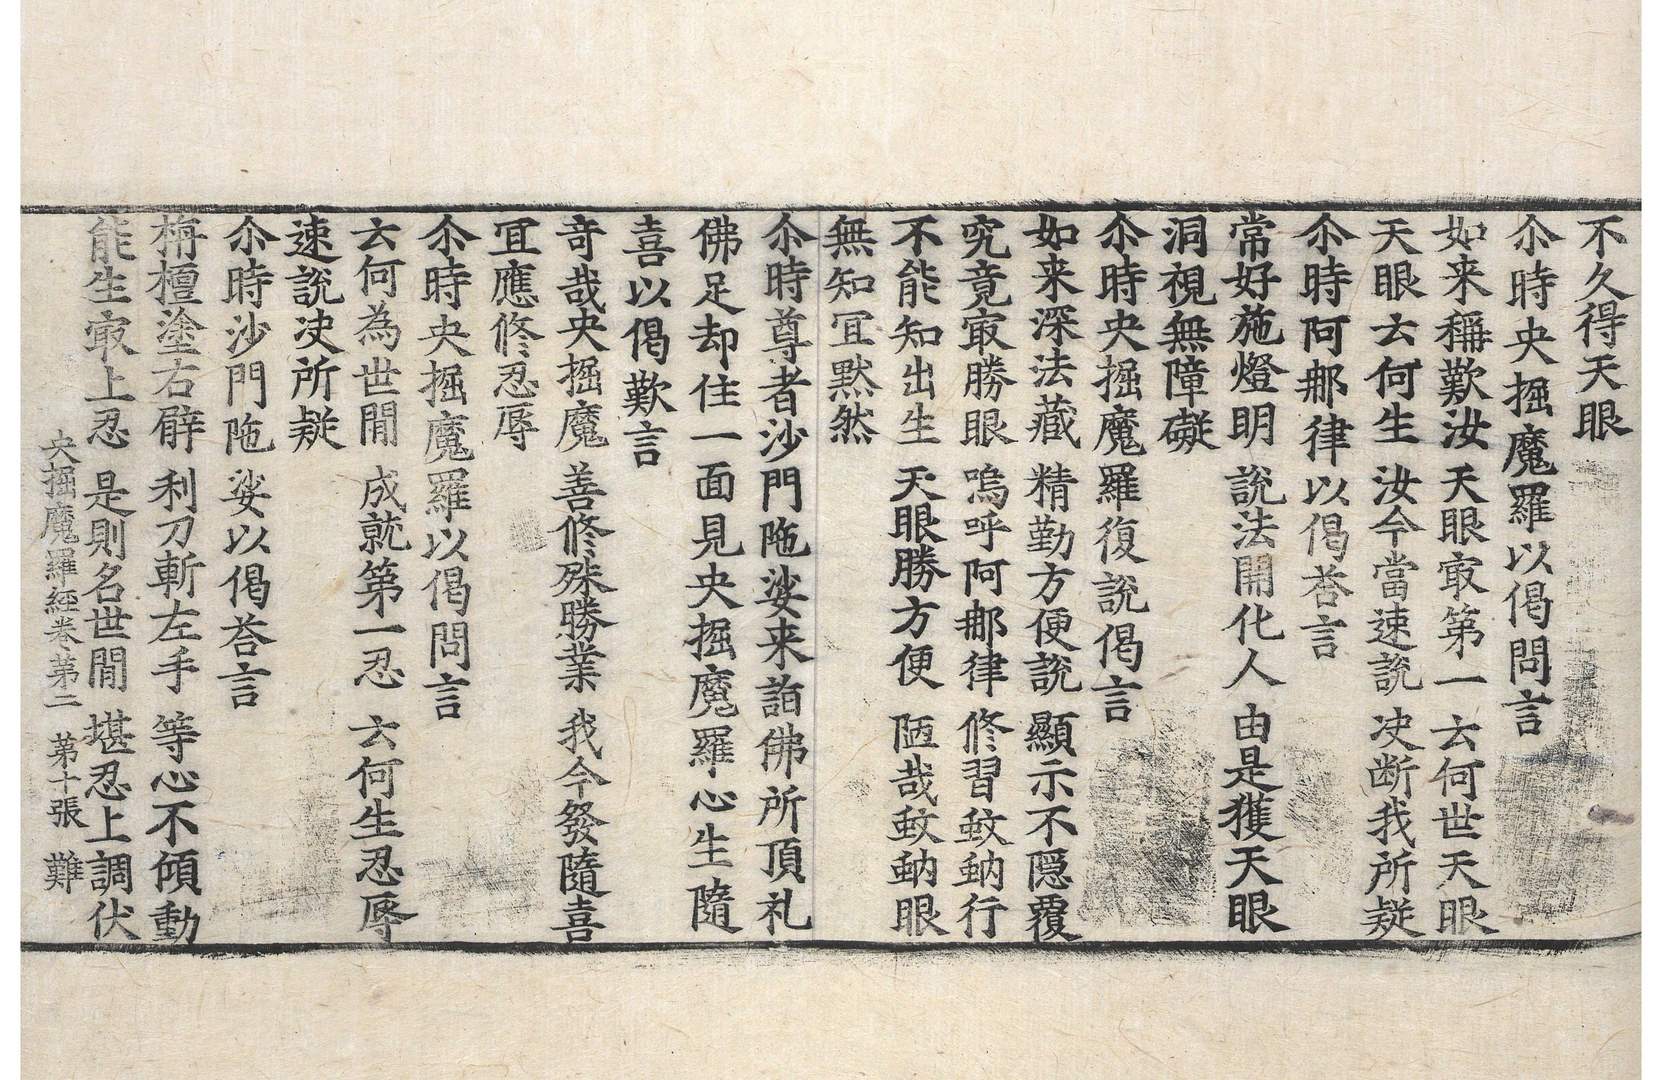 不久得天眼
尒時央掘魔羅以偈問言
如来稱歎汝天眼㝡第一云何世天眼
天眼云何生汝今當速說决断我所疑
尒時阿那律以偈荅言
常好施燈明說法開化人由是獲天眼
洞視無障礙
尒時央掘魔羅復說偈言
如来深法藏精勤方便說顯示不隱覆
究竟㝡勝眼嗚呼阿那律修習蚊蚋行
不能知出生天眼勝方便陋哉蚊蚋眼
無知冝默然
尒時尊者沙門陁娑来詣佛所頂礼
佛足却住一面見央掘魔羅心生隨
喜以偈歎言
竒哉央掘魔善修殊勝業我今發隨喜
冝應修忍辱
尒時央掘魔羅以偈問言
云何為世間成就第一忍云何生忍辱
速說决所疑
尒時沙門陁娑以偈荅言
栴檀塗右臂利刀斬左手等心不傾動
能生㝡上忍是則名世間堪忍上調伏
央掘魔羅經卷第二第十張難